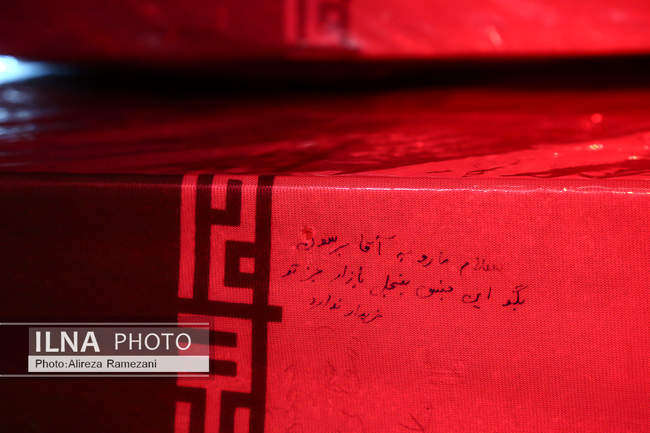 سلام مارو به آقا برسون
بگو این جنس بنجل بازار جز تو
خریدار ندارد
ILNA PHOTO
Photo:Alireza Ramezani